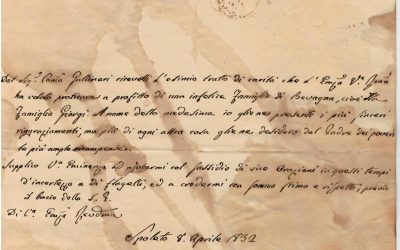 Dal Sig.r Can.co Gallinari ricevetti l'esimio tratto di carità che l'Emza Vra
ha voluto praticare a profitto di una infelice Famiglia di Bevagna, cioè la
Famiglia Giorgi. A nome della medesima io gliene presento i più sinceri
ringraziamenti, ma più di ogni altra cosa gliene desidero dal Padre dei poveri
le più ampie ricompense.
Supplico Vra Eminenza ad ajutarmi col sussidio di sue Orazioni in questi tempi
d'incertezza e di flagelli; ed a credermi con somma stima e rispetto, previo
il bacio della S. P.
Di Vra Emza Rendma
Spoleto 8. Aprile 1832